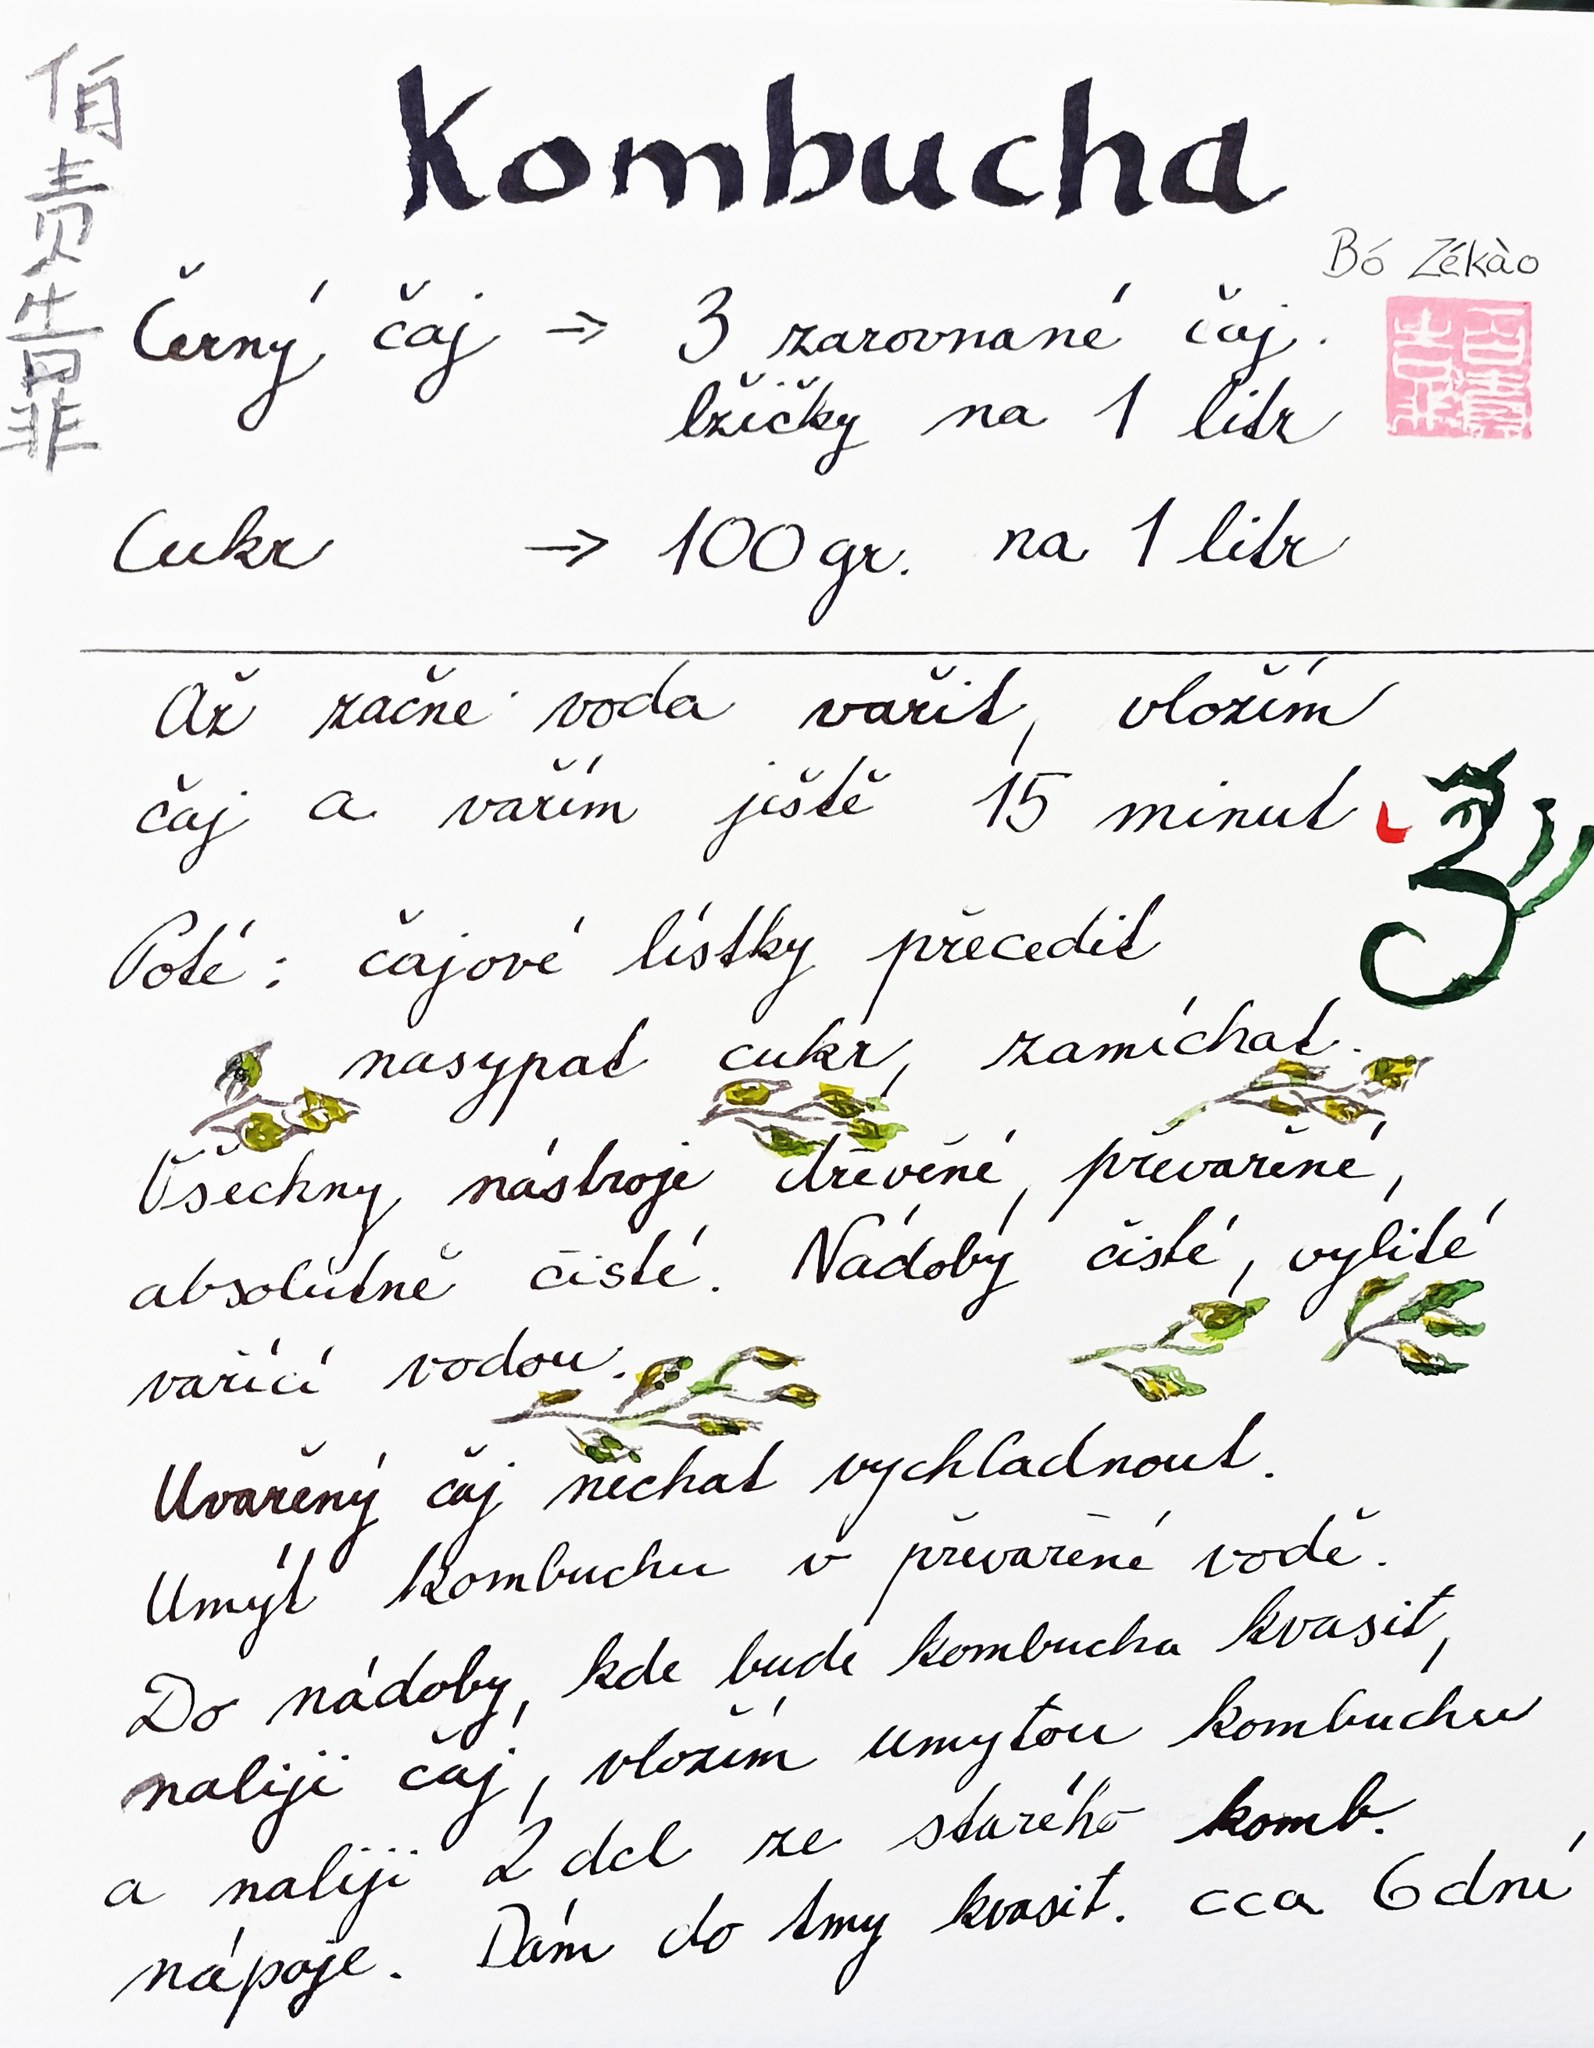 Kombucha
Bó Zékào
Černý čaj → 3 zarovnané čaj.
lžičky na 1 litr
Cukr → 100 gr. na 1 litr
Až začne voda vařit, vložím
čaj a vařím ještě 15 minut
Poté: čajové lístky přecedit
nasypat cukr, zamíchat.
Všechny nástroje dřevěné, převařené,
absolutně čisté. Nádoby čisté, vylité
vařící vodou.
Uvařený čaj nechat vychladnout.
Umýt kombuchu v převařené vodě.
Do nádoby, kde bude kombucha kvasit,
naliji čaj, vložím umytou kombuchu
a naliji 2 dcl ze starého komb.
nápoje. Dám do tmy kvasit. cca 6 dní